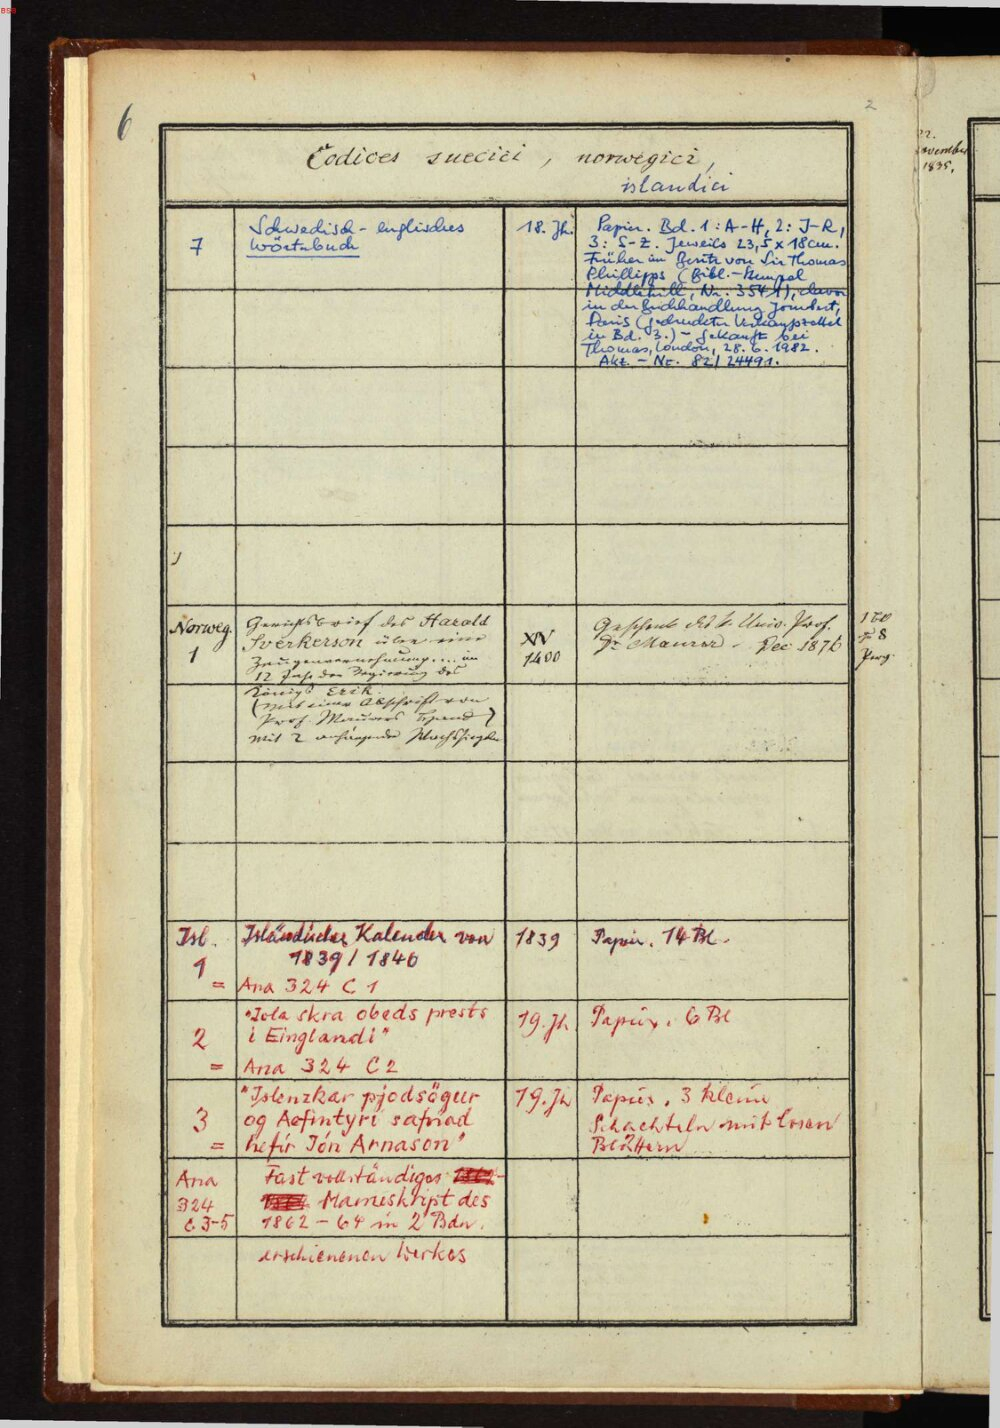 BSB
6
2
Codices suecici, norwegici,
islandici
7
Schwedisch-englisches
Wörterbuch
18. Jh.
Papier. Bd. 1: A-H, 2: J-R,
3: S-Z. Jeweils 23,5 x 18cm.
Früher im Besitz von Sir Thomas
Phillipps (Bibl.-Stempel
Middlehill, Nr. 3541), davor
in der Buchhandlung
Paris (gedruckter
in Bd. 3.) - Gekauft bei
Thomas, London, 28. 6. 1982.
Akz.-Nr. 82/24491.
Norweg.
1
Gerichtsbrief des Harald
Sverkerson über eine
Zeugenvernehmung ... im
12 Jahr der Regierung des
Königs Erik.
(mit einer Abschrift von
Prof. Maurers Hand)
mit 2 anhängenden Wachssiegeln
XIV
1400
Geschenk des k. Univ. Prof.
Dr. Maurer - Dec 1876
Perg
Isl.
1
=
Isländischer Kalender von
1839/1840
Ana 324 C 1
1839
Papier. 14 Bl.
2
=
"Jola skra obeds prests
i Einglandi"
Ana 324 C2
19. Jh
Papier, 6 Bl
3
=
"Islenzkar pjodsögur
og Aefintyri safnad
hefir Jón Arnason"
19. Jh
Papier, 3 kleine
Schachteln mit losen
Blättern
Ana
324
C 3-5
Fast vollständiges
Manuskript des
1862-64 in 2 Bdn.
erschienenen Werkes
22.
November
1835,